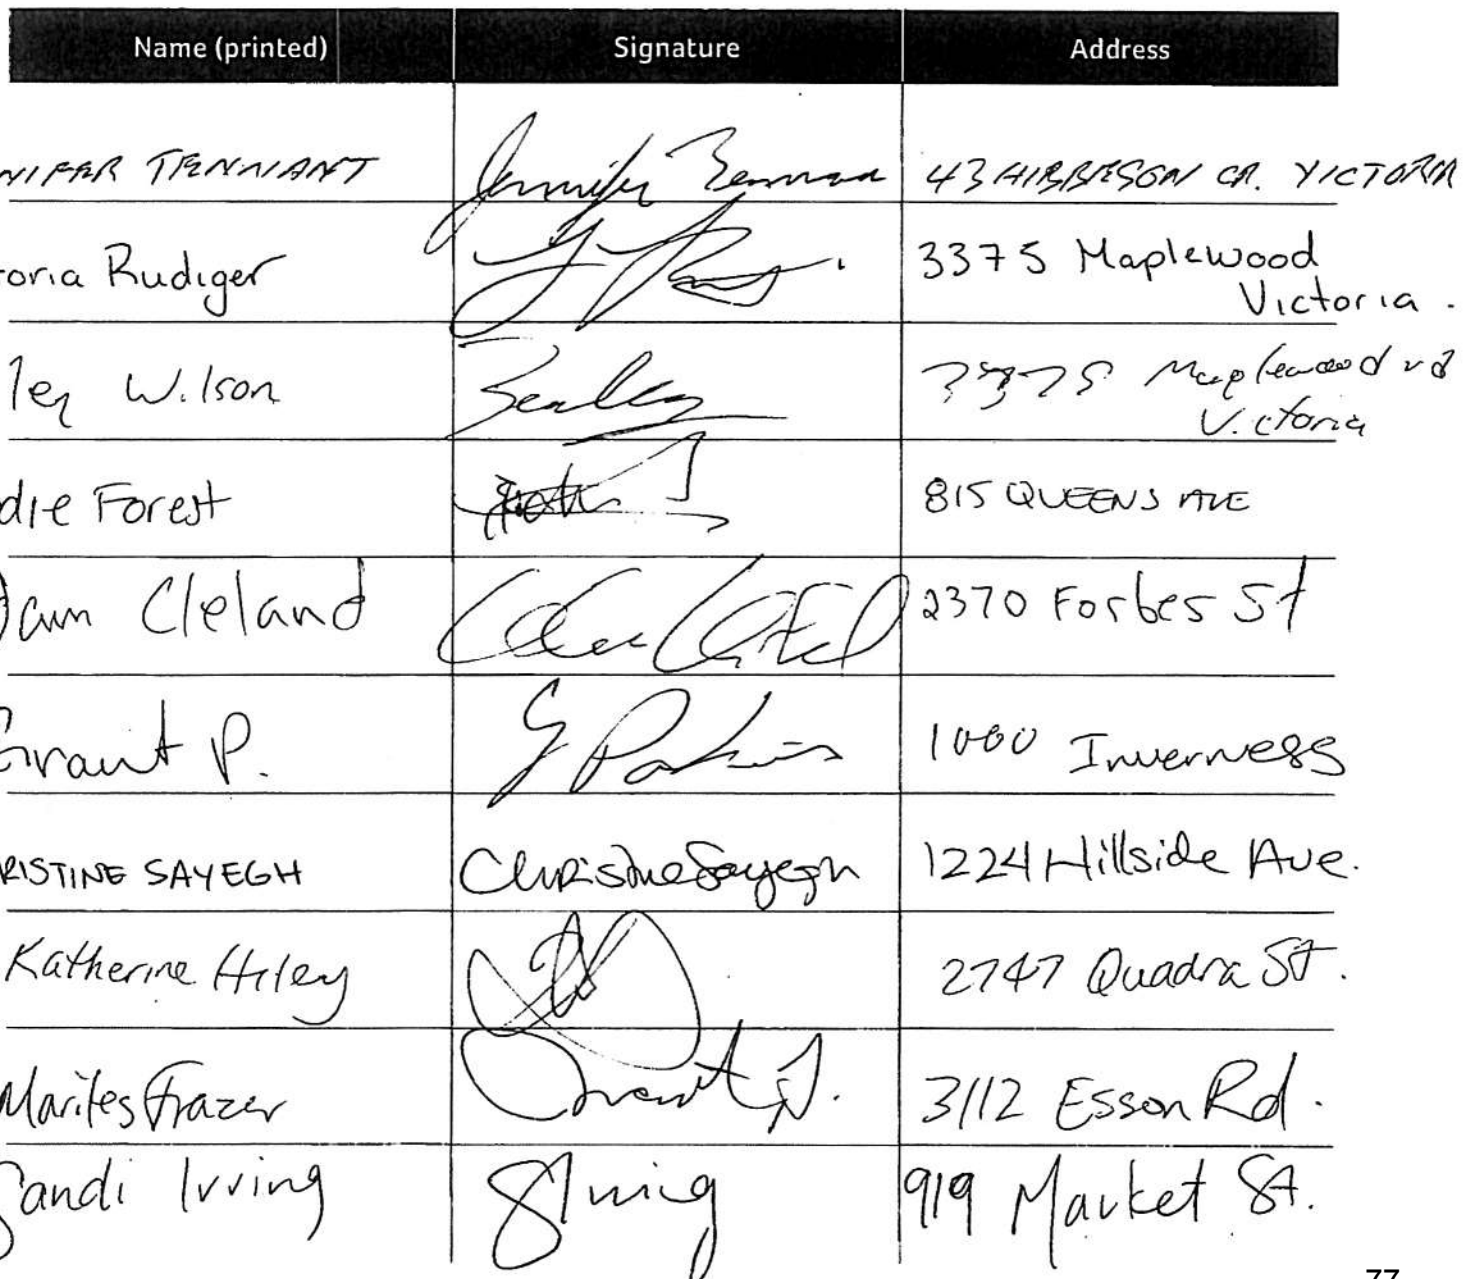 Name (printed) Signature Address
NIFER TENNANT Jennifer 43 HIBBERSON CR. VICTORIA
oria Rudiger 3375 Maplewood
Victoria.
ley Wilson 3375 Maplewood rd
Victoria
die Forest 815 QUEENS AVE
dam Cleland 2370 Forbes St
Grant P. G Parkins 1000 Inverness
RISTINE SAYEGH Christine Sayegh 1224 Hillside Ave.
Katherine Hiley 2747 Quadra St.
Marites Frazer 3112 Esson Rd.
Sandi Irving SIrving 919 Market St.
77